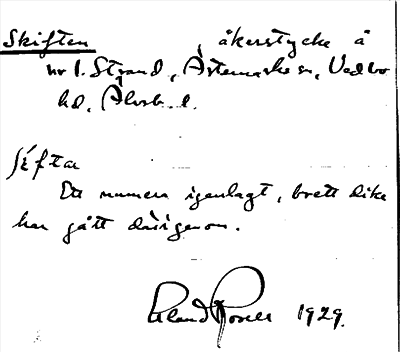 Skiften, åkerstycke å
nr 1. Strand, Årtemarks sn, Vedbo
hd, Älvsb. l.
ʃɛ́ftar
Ett numera igenlagt, brett dike
har gått därigenom.
Erland Rosell 1929.